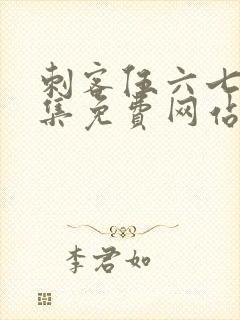 刺客伍六七
集免费网站
李君如